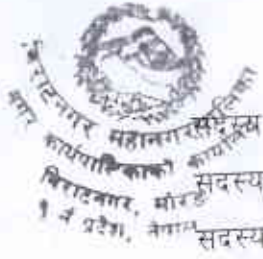 विराटनगर महानगरपालिका
नगर कार्यपालिकाको कार्यालय
विराटनगर, मोरङ
१ नं प्रदेश, नेपाल
सदस्य
सदस्य
सदस्य